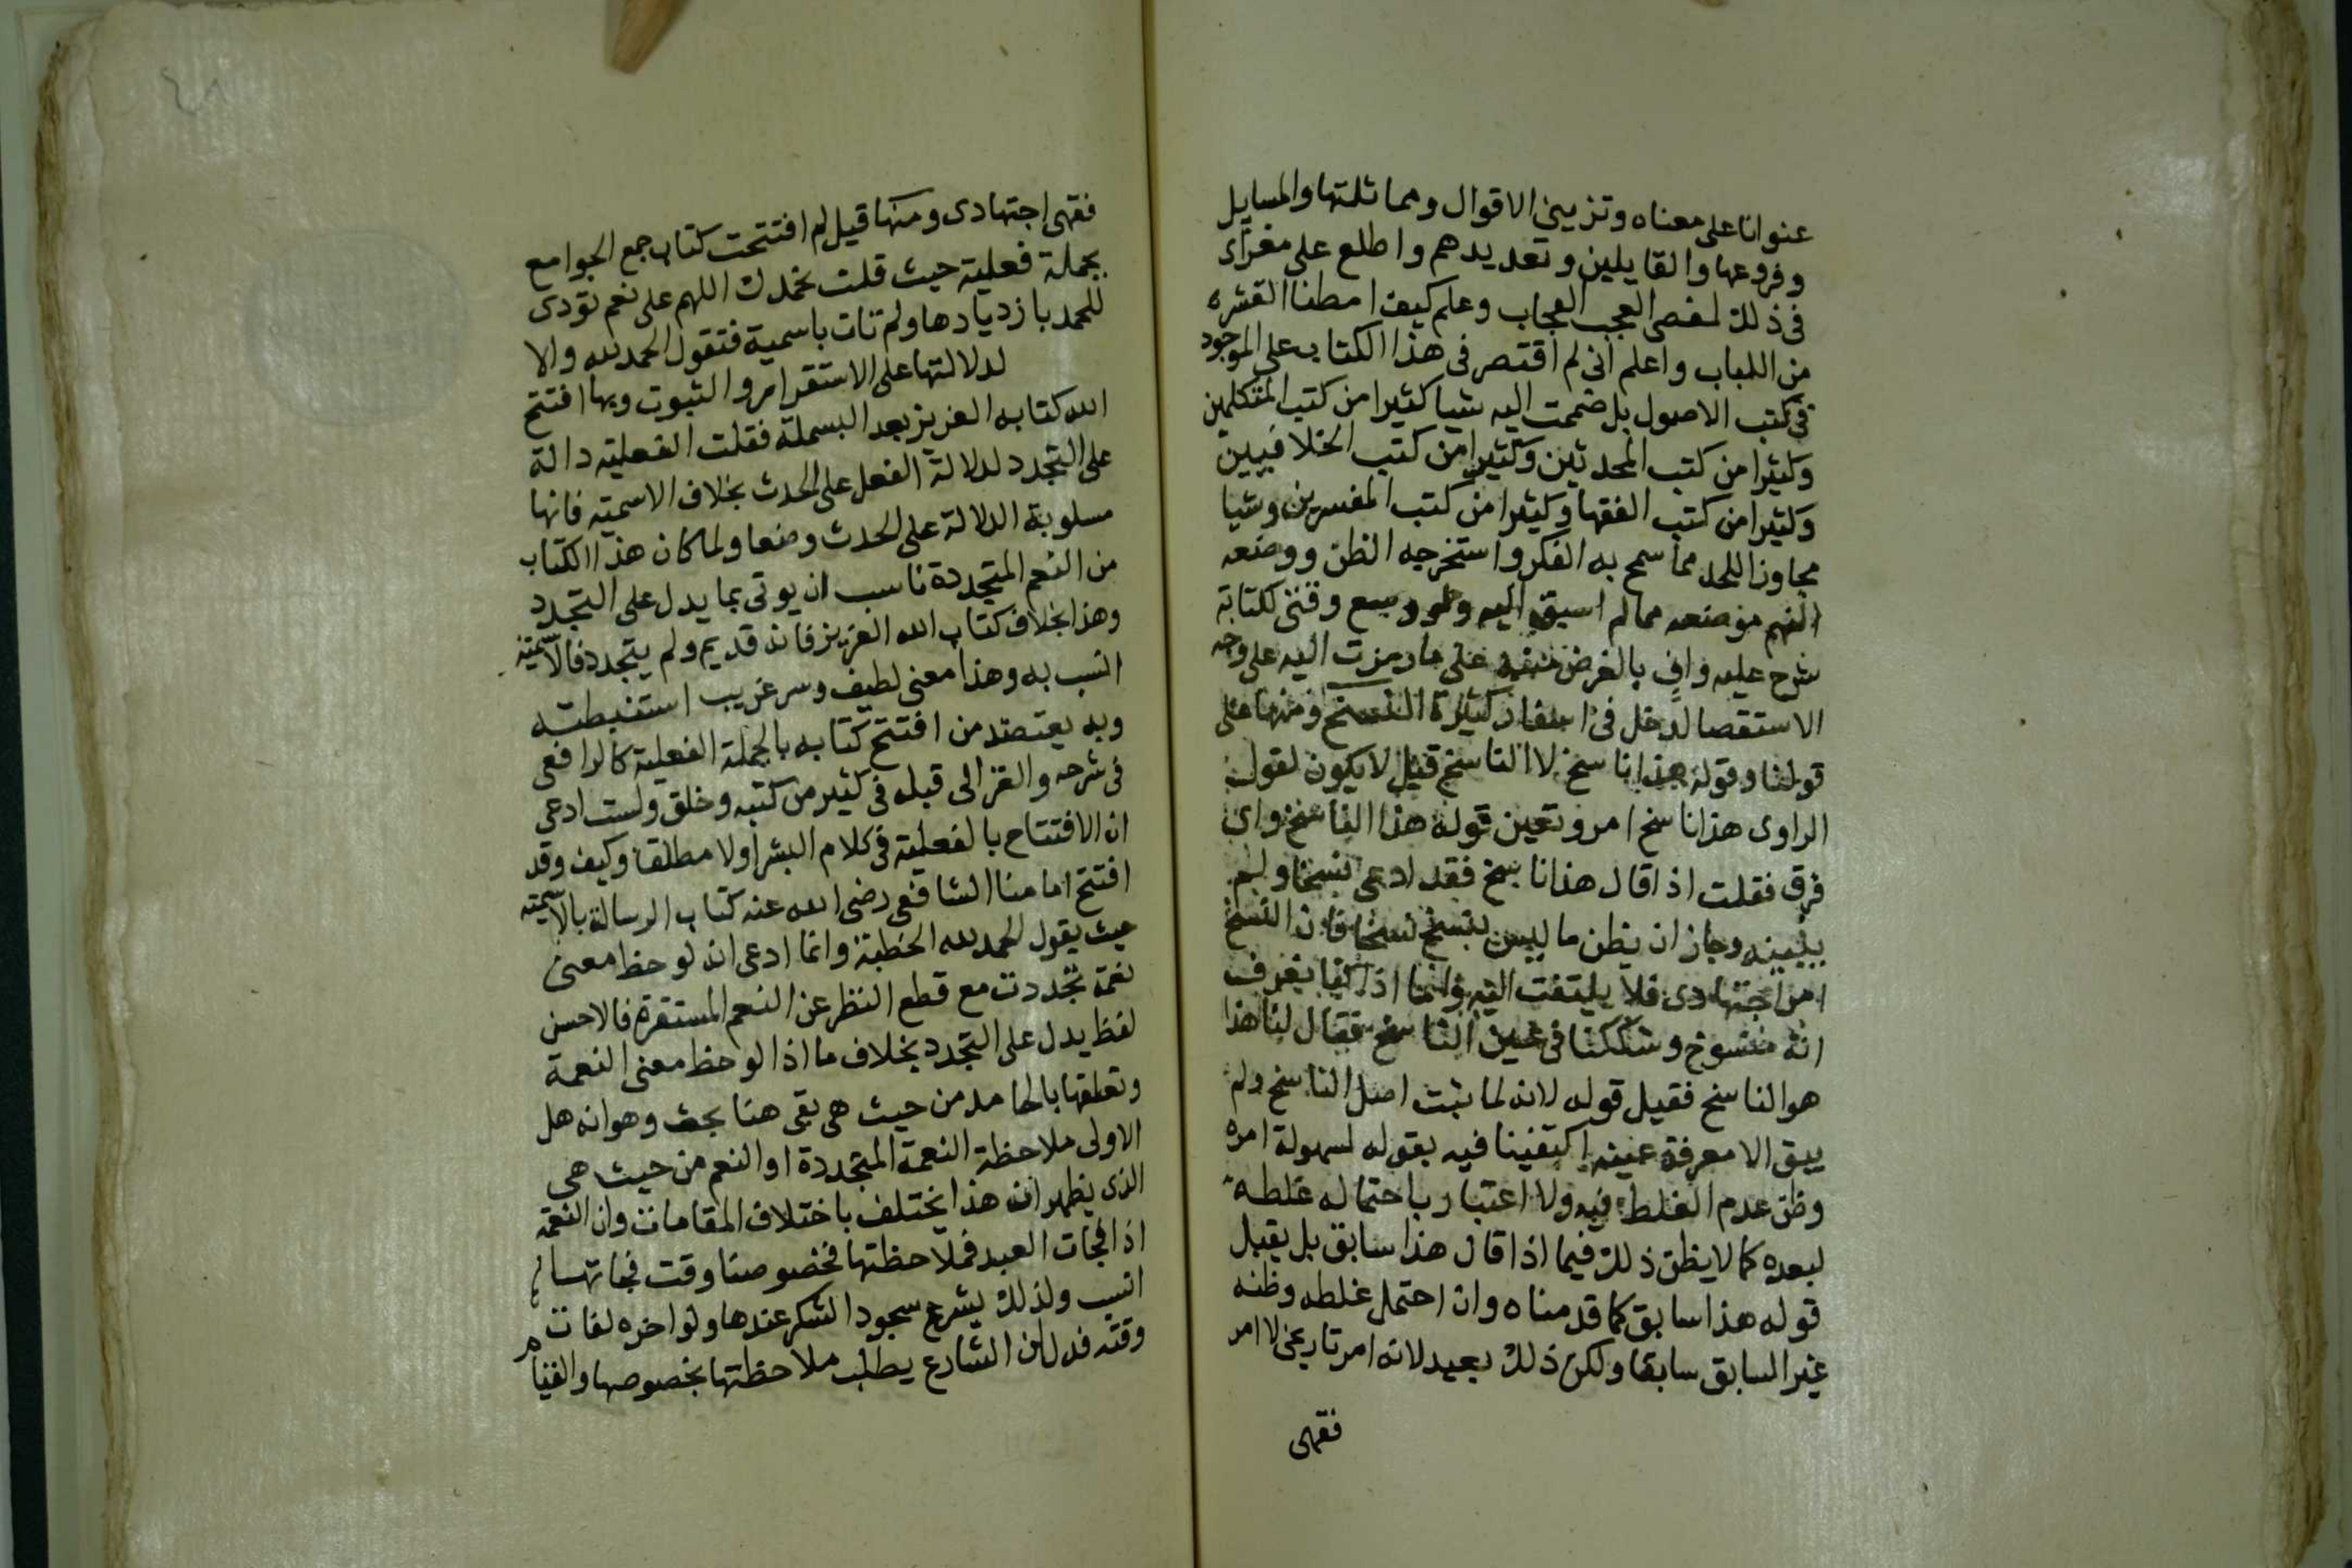 عنوانا على معناه وتزيين الاقوال ومماثلتها والمسايل
وفروعها والقايلين وتعديدهم واطلع على مغزاى
فى ذلك لقضى العجب العجاب وعلم كيف امطنا القشره
من اللباب واعلم انى لم اقتصر فى هذا الكتاب على الموجود
فى كتب الاصول بل ضممت اليه شيا كثيرا من كتب المتكلمين
وكثيرا من كتب المحدثين وكثيرا من كتب الخلافيين
وكثيرا من كتب الفقها وكثيرا من كتب المفسرين وشيا
مجاوز الحد مما سمح به الفكر واستخرجه الظن ووضعه
الفهم موضعه مما لم اسبق اليه ولو وسع وقتى لكتابة
شرح عليه واف بالغرض منبه على ما رمزت اليه على وجه
الاستقصا لدخل فى اسفار كثيرة النسخ ومنها على
قولنا وقوله هذا ناسخ لا الناسخ قيل لا يكون لقول
الراوى هذا ناسخ امر وتعين قوله هذا الناسخ واى
فرق فقلت اذا قال هذا ناسخ فقد ادعى نسخا ولم
يبينه وجاز ان يظن ما ليس بنسخ نسخا فان النسخ
امر اجتهادى فلا يلتفت اليه وانما اذا كنا نعرف
انه منسوخ وشككنا فى عين الناسخ فقال لنا هذا
هو الناسخ فقيل قوله لانه لما ثبت اصل الناسخ ولم
يبق الا معرفة عينه اكتفينا فيه بقوله لسهولة امره
وظن عدم الغلط فيه ولا اعتبار باحتماله غلطه
لبعده كما لا يظن ذلك فيما اذا قال هذا سابق بل يقبل
قوله هذا سابق كما قدمناه وان احتمل غلطه وظنه
غير السابق سابقا ولكن ذلك بعيد لانه امر تاريخى لا امر
فقهى
٤٨
فقهى اجتهادى ومنها قيل لم افتتحت كتاب جمع الجوامع
بجملة فعلية حيث قلت نحمدك اللهم على نعم تؤدى
للحمد بازديادها ولم تات باسمية فتقول الحمد لله والا
لدلالتها على الاستقرار والثبوت وبها افتتح
الله كتابه العزيز بعد البسملة فقلت الفعلية دالة
على التجدد لدلالة الفعل على الحدث بخلاف الاسمية فانها
مسلوبة الدلالة على الحدث وضعا ولما كان هذا الكتاب
من النعم المتجددة ناسب ان يوتى بما يدل على التجدد
وهذا بخلاف كتاب الله العزيز فانه قديم ولم يتجدد فالاسمية
انسب به وهذا معنى لطيف وسر غريب استنبطته
وبه يعتضد من افتتح كتابه بالجملة الفعلية كالرافعى
فى شرحه والغزالى قبله فى كثير من كتبه وخلق ولست ادعى
ان الافتتاح بالفعلية فى كلام البشر اولا مطلقا وكيف وقد
افتتح امامنا الشافعى رضى الله عنه كتاب الرسالة بالاسمية
حيث يقول الحمد لله الخطبة وانما ادعى انه لو حظ معنى
نعمة تجددت مع قطع النظر عن النعم المستقرة فالاحسن
لفظ يدل على التجدد بخلاف ما اذا لو حظ معنى النعمة
وتعلقها بالحامد من حيث هى بقى هنا بحث وهو انه هل
الاولى ملاحظة النعمة المتجددة او النعم من حيث هى
الذى يظهر ان هذا يختلف باختلاف المقامات وان النعمة
اذا فجات العبد فملاحظتها فخصوصنا وقت فجاتها
انسب ولذلك يشرع سجود الشكر عندها ولو اخره لفات
وقته فدل ان الشارع يطلب ملاحظتها بخصوصها والقيام